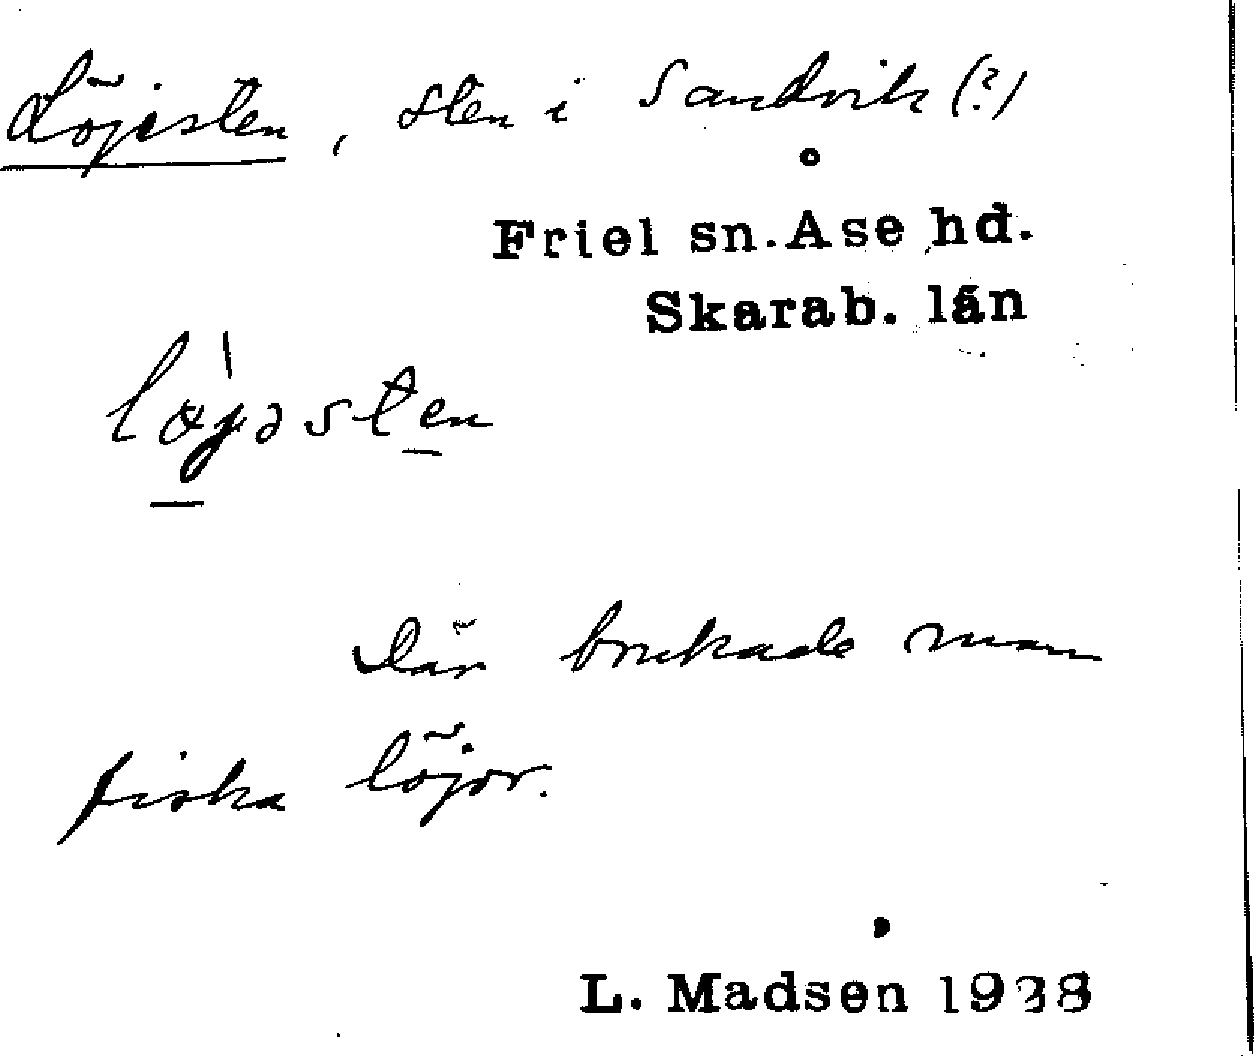 Löjesten, sten i Sandvik (?)
Friel sn. Åse hd.
Skarab. län
løyasten
Där brukade man
fiska löjor.
L. Madsen 1938